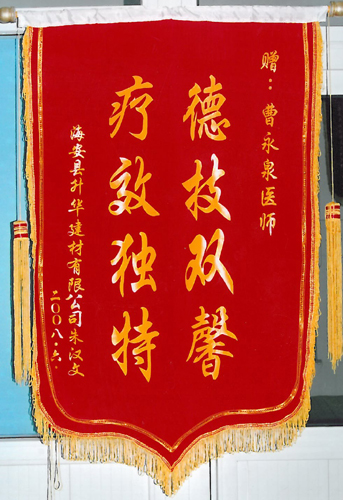 赠：曹永泉医师
德技双馨
疗效独特
海安县升华建材有限公司朱汉文
二00八.六.